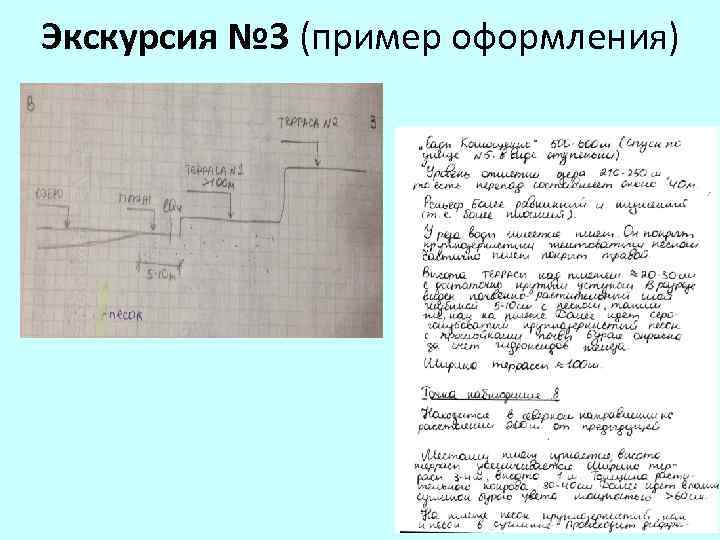 Экскурсия №3 (пример оформления)
В
З
ТЕРРАСА №2
ТЕРРАСА №1
>100м
ОЗЕРО
ПЛЯЖ
5-10м
-песок
500-600м (спуск по
улице №5 в виде ступеньки)
Уровень отметки озера 210-250м,
то есть перепад составляет около 40м
Рельеф более равнинный и
(т.е. более плоский).
У реза воды имеется пляж. Он покрыт
крупнозернистым желтоватым песком
частично пляж покрыт травой.
Высота террасы над пляжем ≈20-30см
с достаточно крутым уступом. В разрезе
виден почвенно-растительный слой
глубиной 5-10см с песком, таким
же, как на пляже. Далее идет серо-
крупнозернистый песок
с прослойками почвы бурая окраска
за счет гидроксидов железа.
Ширина террасы ≈100м.
Точка наблюдения 8
Находится в северном направлении на
расстоянии от предыдущей
Местами пляж сужается, высота
террасы увеличивается. Ширина тер-
расы высота 1м. Толщина расти-
тельного покрова 30-40см. Далее идет
суглинок бурого цвета мощностью >60см.
На пляже песок крупнозернистый, как
и песок в суглинке. Происходит